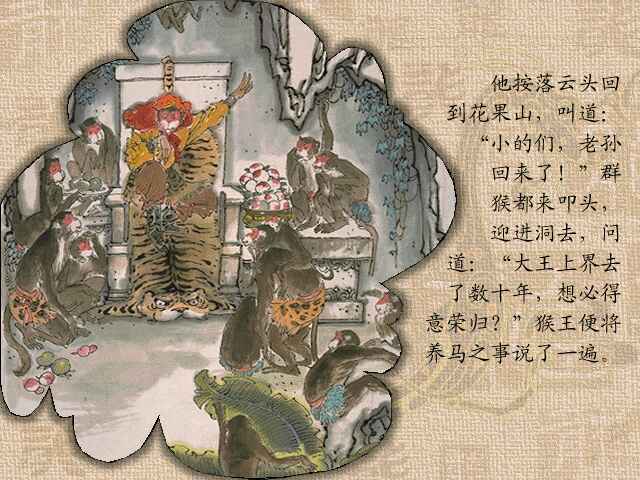 他按落云头回
到花果山，叫道：
“小的们，老孙
回来了！”群
猴都来叩头，
迎进洞去，问
道：“大王上界去
了数十年，想必得
意荣归？”猴王便将
养马之事说了一遍。